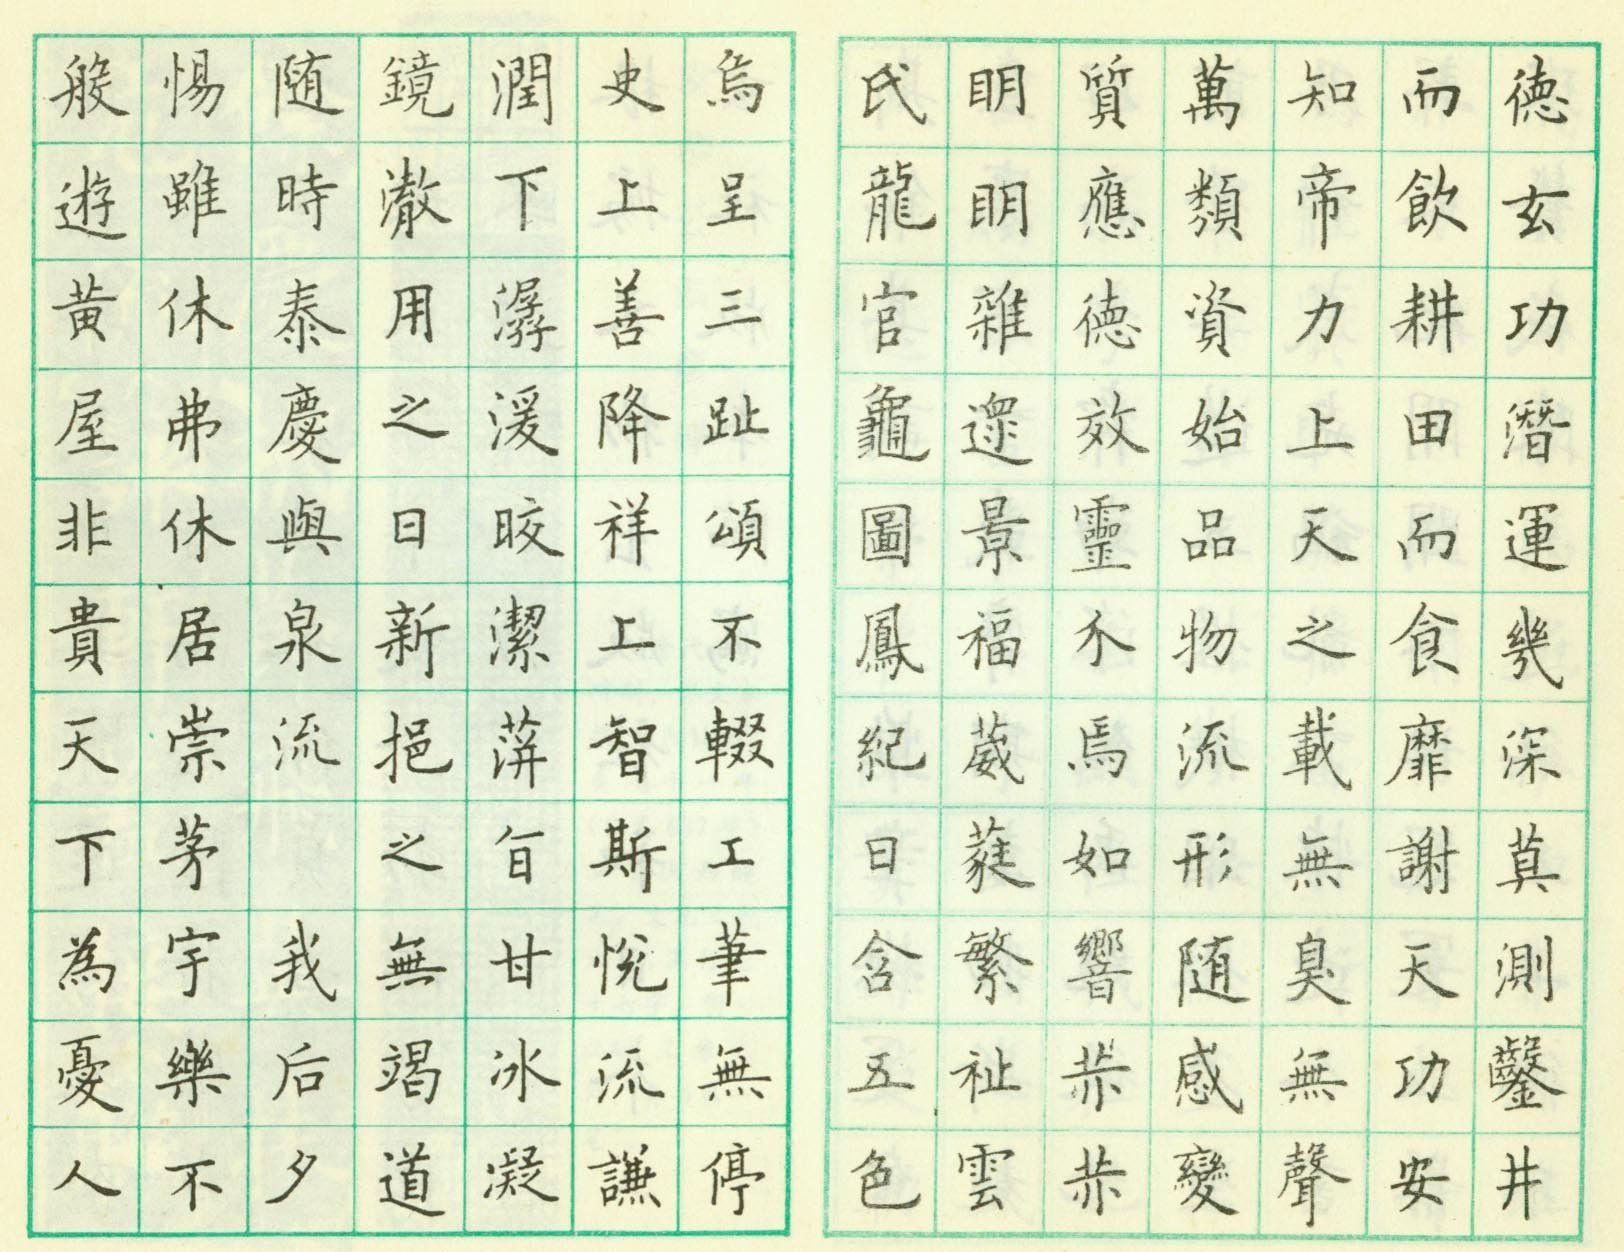 德玄功潛運幾深莫測鑿井
而飲耕田而食靡謝天功安
知帝力上天之載無臭無聲
萬類資始品物流形随感變
質應德效靈介焉如響赫赫
明明雜遝景福葳蕤繁祉雲
氏龍官龜圖鳳紀日含五色
烏呈三趾頌不輟工筆無停
史上善降祥上智斯悅流謙
潤下潺湲皎潔蓱旨醴甘冰凝
鏡澈用之日新挹之無竭道
随時泰慶與泉流 我后夕
惕雖休弗休居崇茅宇樂不
般遊黃屋非貴天下為憂人